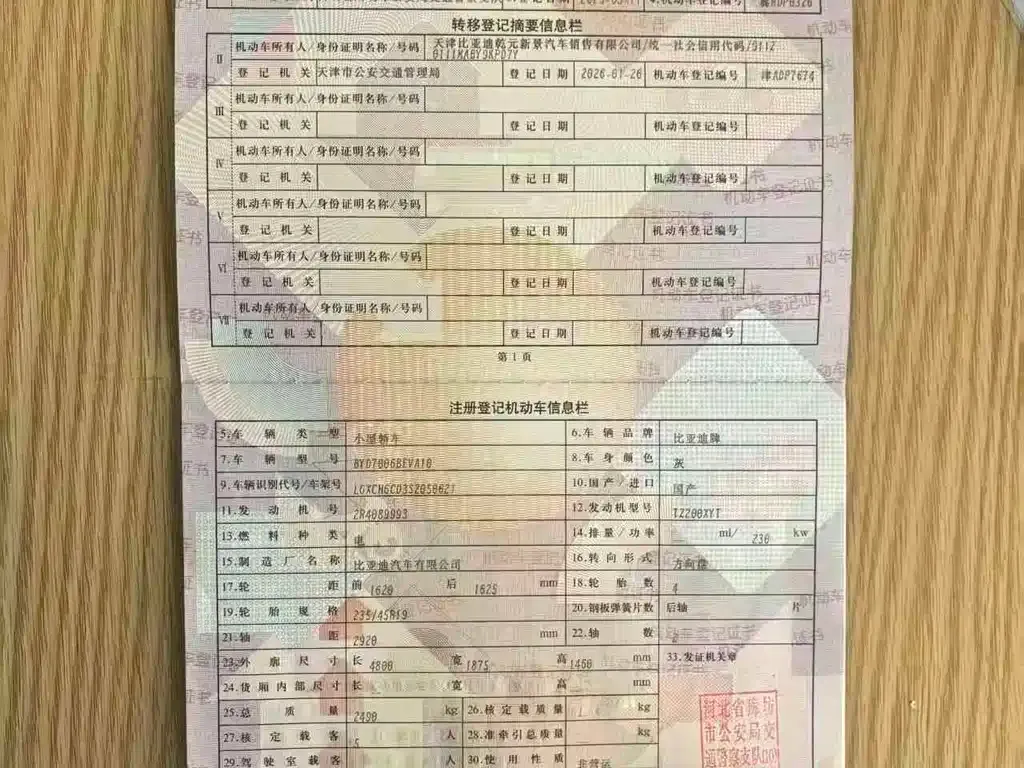 转移登记摘要信息栏
II 机动车所有人/身份证明名称/号码 天津比亚迪乾元新景汽车销售有限公司/统一社会信用代码/9112
0111MABY9KPD7Y
登记机关 天津市公安交通管理局 登记日期 2026-01-26 机动车登记编号 津ADP7674
III 机动车所有人/身份证明名称/号码
登记机关 登记日期 机动车登记编号
IV 机动车所有人/身份证明名称/号码
登记机关 登记日期 机动车登记编号
V 机动车所有人/身份证明名称/号码
登记机关 登记日期 机动车登记编号
VI 机动车所有人/身份证明名称/号码
登记机关 登记日期 机动车登记编号
VII 机动车所有人/身份证明名称/号码
登记机关 登记日期 机动车登记编号
第1页
注册登记机动车信息栏
5.车辆类型 小型轿车 6.车辆品牌 比亚迪牌
7.车辆型号 BYD7006BEVA10 8.车身颜色 灰
9.车辆识别代号/车架号 LGXCH6CD3S2050621 10.国产/进口 国产
11.发动机号 2R4089993 12.发动机型号 TZ200XYT
13.燃料种类 电 14.排量/功率 ml/ 230 kw
15.制造厂名称 比亚迪汽车有限公司 16.转向形式 方向盘
17.轮距 前 1620 后 1625 mm 18.轮胎数 4
19.轮胎规格 235/45R19 20.钢板弹簧片数 后轴 片
21.轴距 2920 mm 22.轴数 2
23.外廓尺寸 长 4800 宽 1875 高 1460 mm 33.发证机关章
24.货厢内部尺寸 长 宽 高 mm
25.总质量 2490 kg 26.核定载质量 kg
27.核定载客 5 人 28.准牵引总质量 kg
29.驾驶室载客 人 30.使用性质 非营运
河北省廊坊
市公安局交
通警察支队